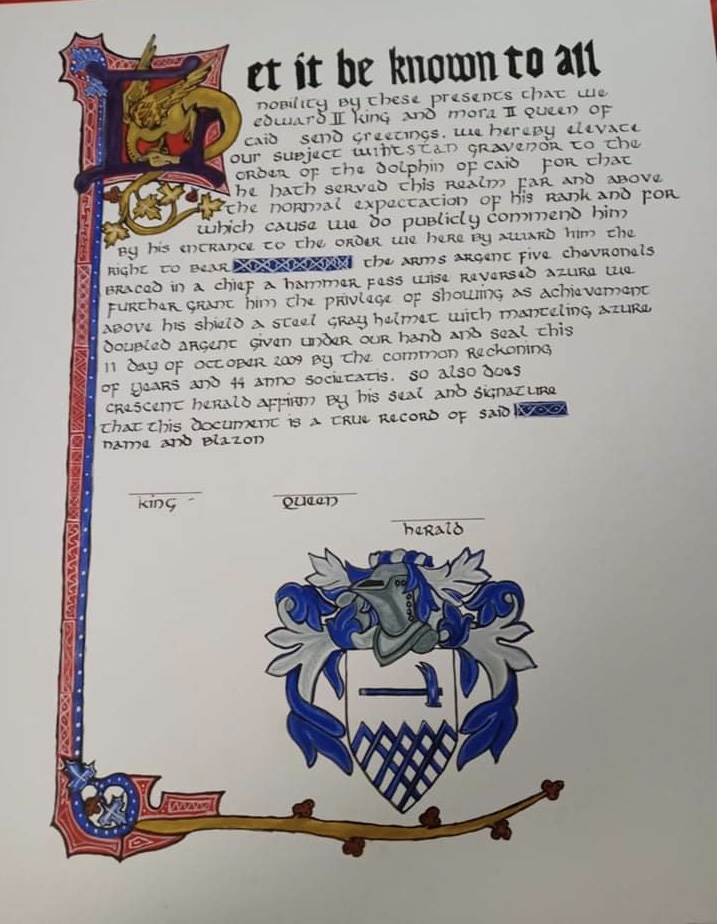 Let it be known to all
nobility by these presents that we
edward II king and mora II queen of
caid send greetings. we hereby elevate
our subject wihtstan gravenor to the
order of the dolphin of caid for that
he hath served this realm far and above
the normal expectation of his rank and for
which cause we do publicly commend him
by his entrance to the order we here by award him the
right to bear the arms argent five chevronels
braced in a chief a hammer fess wise reversed azure we
further grant him the privlege of showing as achievement
above his shield a steel gray helmet with manteling azure
doubled argent given under our hand and seal this
11 day of october 2009 by the common reckoning
of years and 44 anno societatis. so also does
crescent herald affirm by his seal and signature
that this document is a true record of said
name and blazon
king - queen
herald